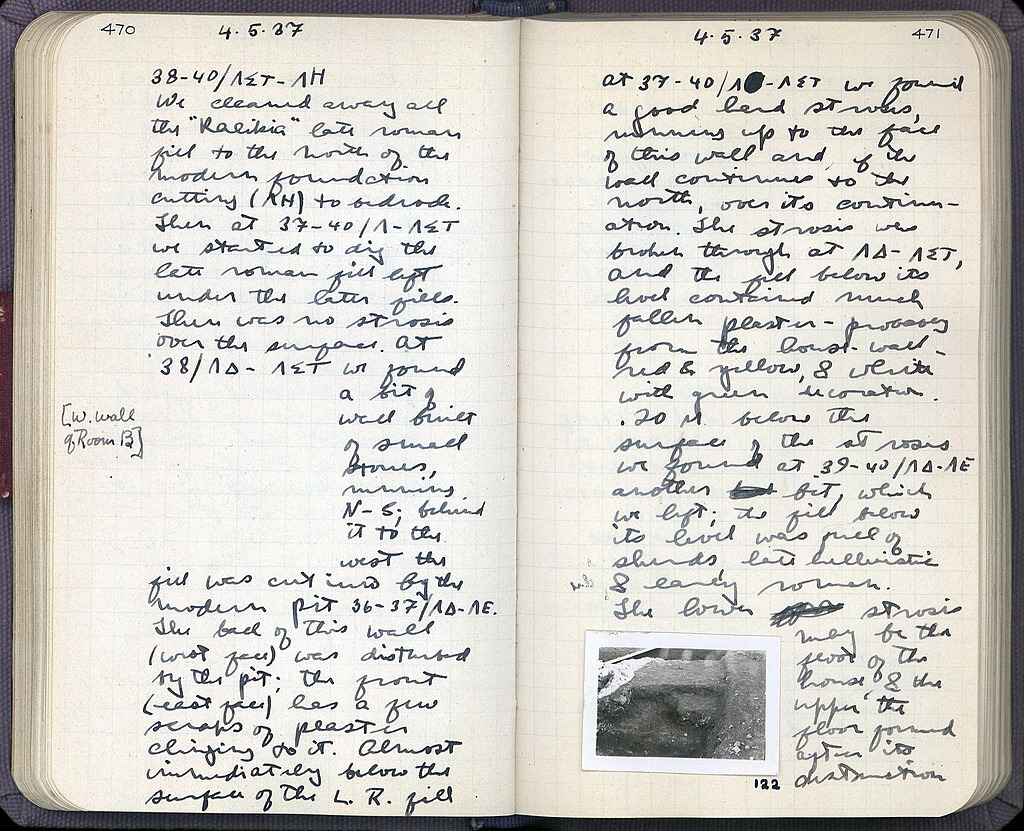 470
4.5.37
38-40/ΛΣΤ-ΛΗ
We cleaned away all
the "Ralikia" late roman
fill to the north of the
modern foundation
cutting (ΛΗ) to bedrock.
Then at 37-40/Λ-ΛΣΤ
we started to dig the
late roman fill left
under the later fills.
There was no strosis
over the surface. At
38/ΛΔ-ΛΣΤ we found
a bit of
wall built
of small
stones,
running
N-S; behind
it to the
west the
[W. wall
of Room B]
fill was cut into by the
modern pit 36-37/ΛΔ-ΛΕ.
The back of this wall
(west face) was disturbed
by the pit; the front
(east face) has a few
scraps of plaster
clinging to it. Almost
immediately below the
surface of the L. R. fill
4.5.37
471
at 37-40/Λ-ΛΣΤ we found
a good hard strosis,
running up to the face
of this wall and, if the
wall continues to the
north, over its continu-
ation. The strosis was
broken through at ΛΔ-ΛΣΤ,
and the fill below its
level contained much
fallen plaster - probably
from the house-wall -
red & yellow, & white
with green decoration.
.20 M. below the
surface of the strosis
we found at 39-40/ΛΔ-ΛΕ
another bit, which
we left; the fill below
its level was full of
sherds, late hellenistic
& early roman.
The lower strosis
may be the
floor of the
house & the
upper the
floor formed
after its
destruction
122